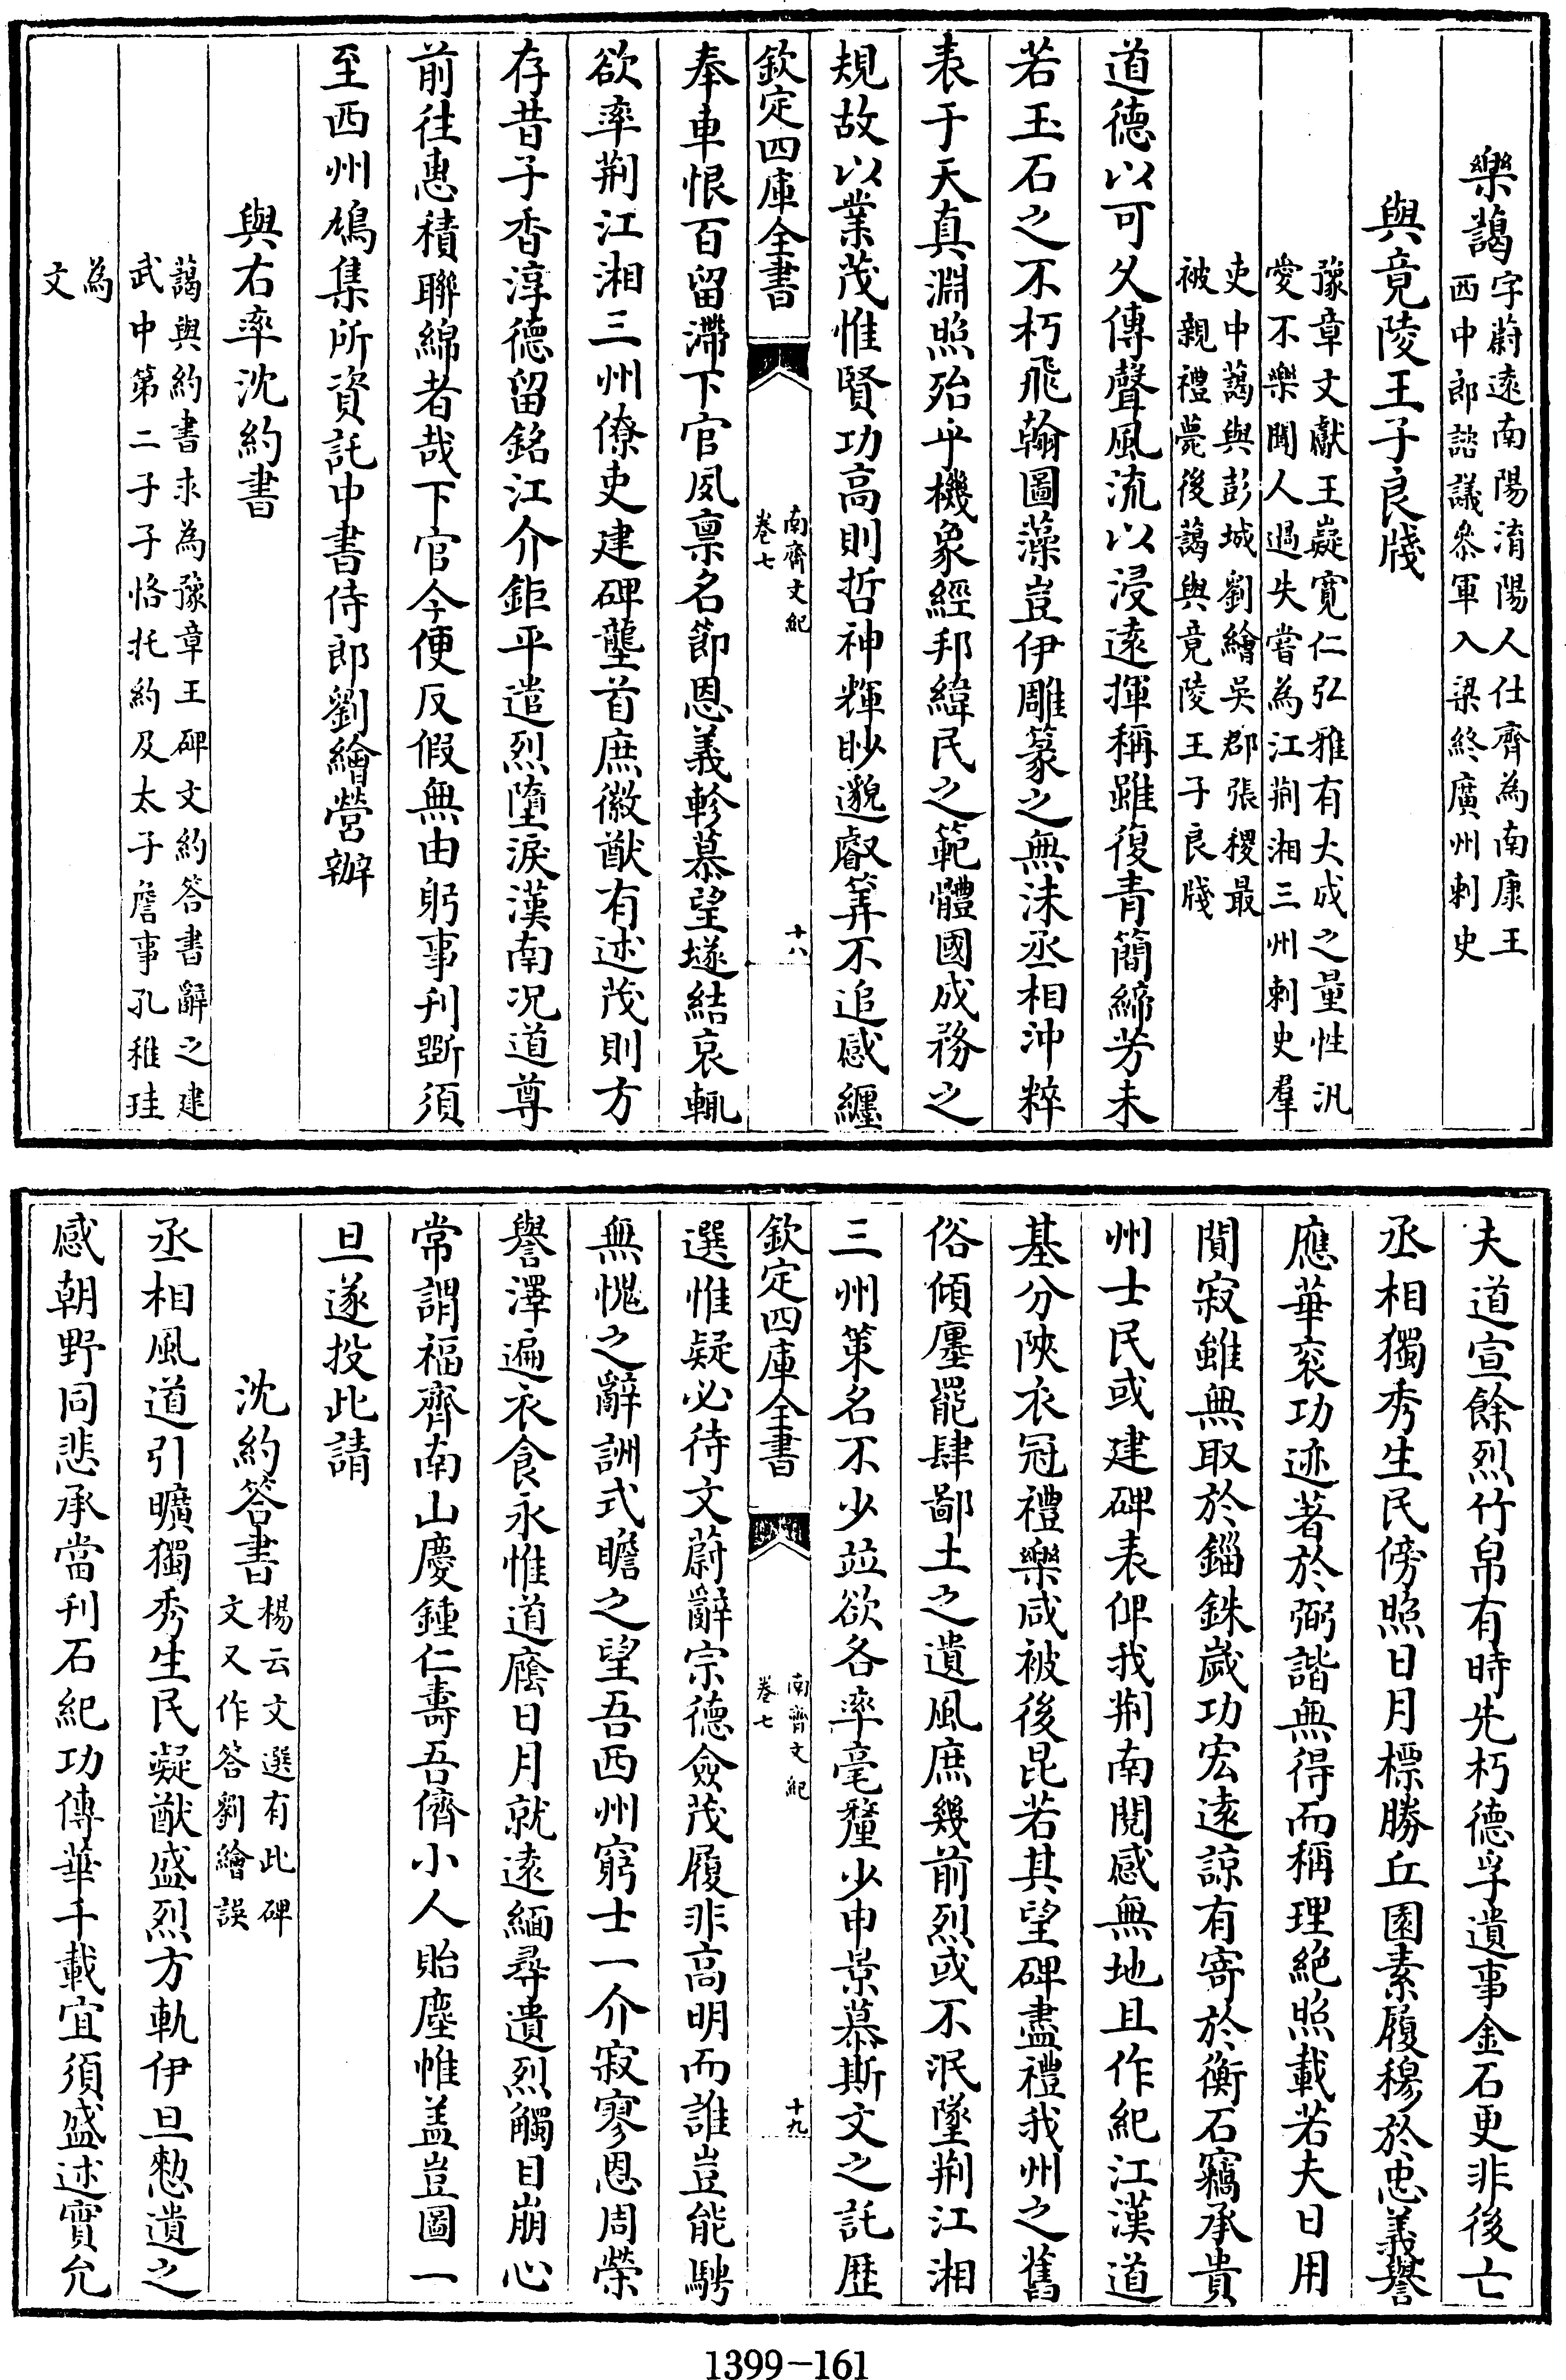 樂藹字蔚遠南陽淯陽人仕齊為南康王
西中郎諮議叅軍入梁終廣州刺史
與竟陵王子良牋
豫章文獻王嶷寬仁弘雅有大成之量性汎
愛不樂聞人過失嘗為江荆湘三州刺史羣
吏中藹與彭城劉繪吳郡張稷最
被親禮薨後藹與竟陵王子良牋
道德以可久傳聲風流以浸遠揮稱雖復青簡締芳未
若玉石之不朽飛翰圖藻豈伊雕篆之無沬丞相沖粹
表于天真淵照殆乎機象經邦緯民之範體國成務之
規故以業茂惟賢功高則哲神輝眇邈叡筭不追感纏
欽定四庫全書
南齊文紀
卷七
十八
奉車恨百留滯下官夙禀名節恩義軫慕望墜結哀輒
欲率荆江湘三州僚吏建碑壟首庶徽猷有述茂則方
存昔子香淳德留銘江介鉅平遺烈墮淚漢南况道尊
前往惠積聯綿者哉下官今便反假無由躬事刋斲須
至西州鳩集所資託中書侍郎劉繪營辦
與右率沈約書
藹與約書求為豫章王碑文約答書辭之建
武中第二子子恪托約及太子詹事孔稚珪
為
文
夫道宣餘烈竹帛有時先朽德孚遺事金石更非後亡
丞相獨秀生民傍照日月標勝丘園素履穆於忠義譽
應華衮功迹著於弼諧無得而稱理絕照載若夫日用
閴寂雖無取於錙銖歲功宏遠諒有寄於衡石竊承貴
州士民或建碑表俾我荆南閲感無地且作紀江漢道
基分陝衣冠禮樂咸被後昆若其望碑盡禮我州之舊
俗傾廛罷肆鄙土之遺風庶幾前烈或不泯墜荆江湘
三州策名不少竝欲各率毫釐少申景慕斯文之託歴
欽定四庫全書
南齊文紀
卷七
十九
選惟疑必待文蔚辭宗德僉茂履非高明而誰豈能騁
無愧之辭詶式瞻之望吾西州窮士一介寂寥恩周榮
譽澤遍衣食永惟道廕日月就遠緬尋遺烈觸目崩心
常謂福齊南山慶鍾仁壽吾儕小人貽塵帷盖豈圖一
旦遂投此請
沈約答書楊云文選有此碑
文又作答劉繪誤
丞相風道引曠獨秀生民凝猷盛烈方軌伊旦憖遺之
感朝野同悲承當刋石紀功傳華千載宜須盛述實允
1399-161